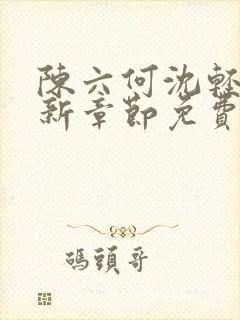 陳六何沈輕
新章節免費
碼頭哥